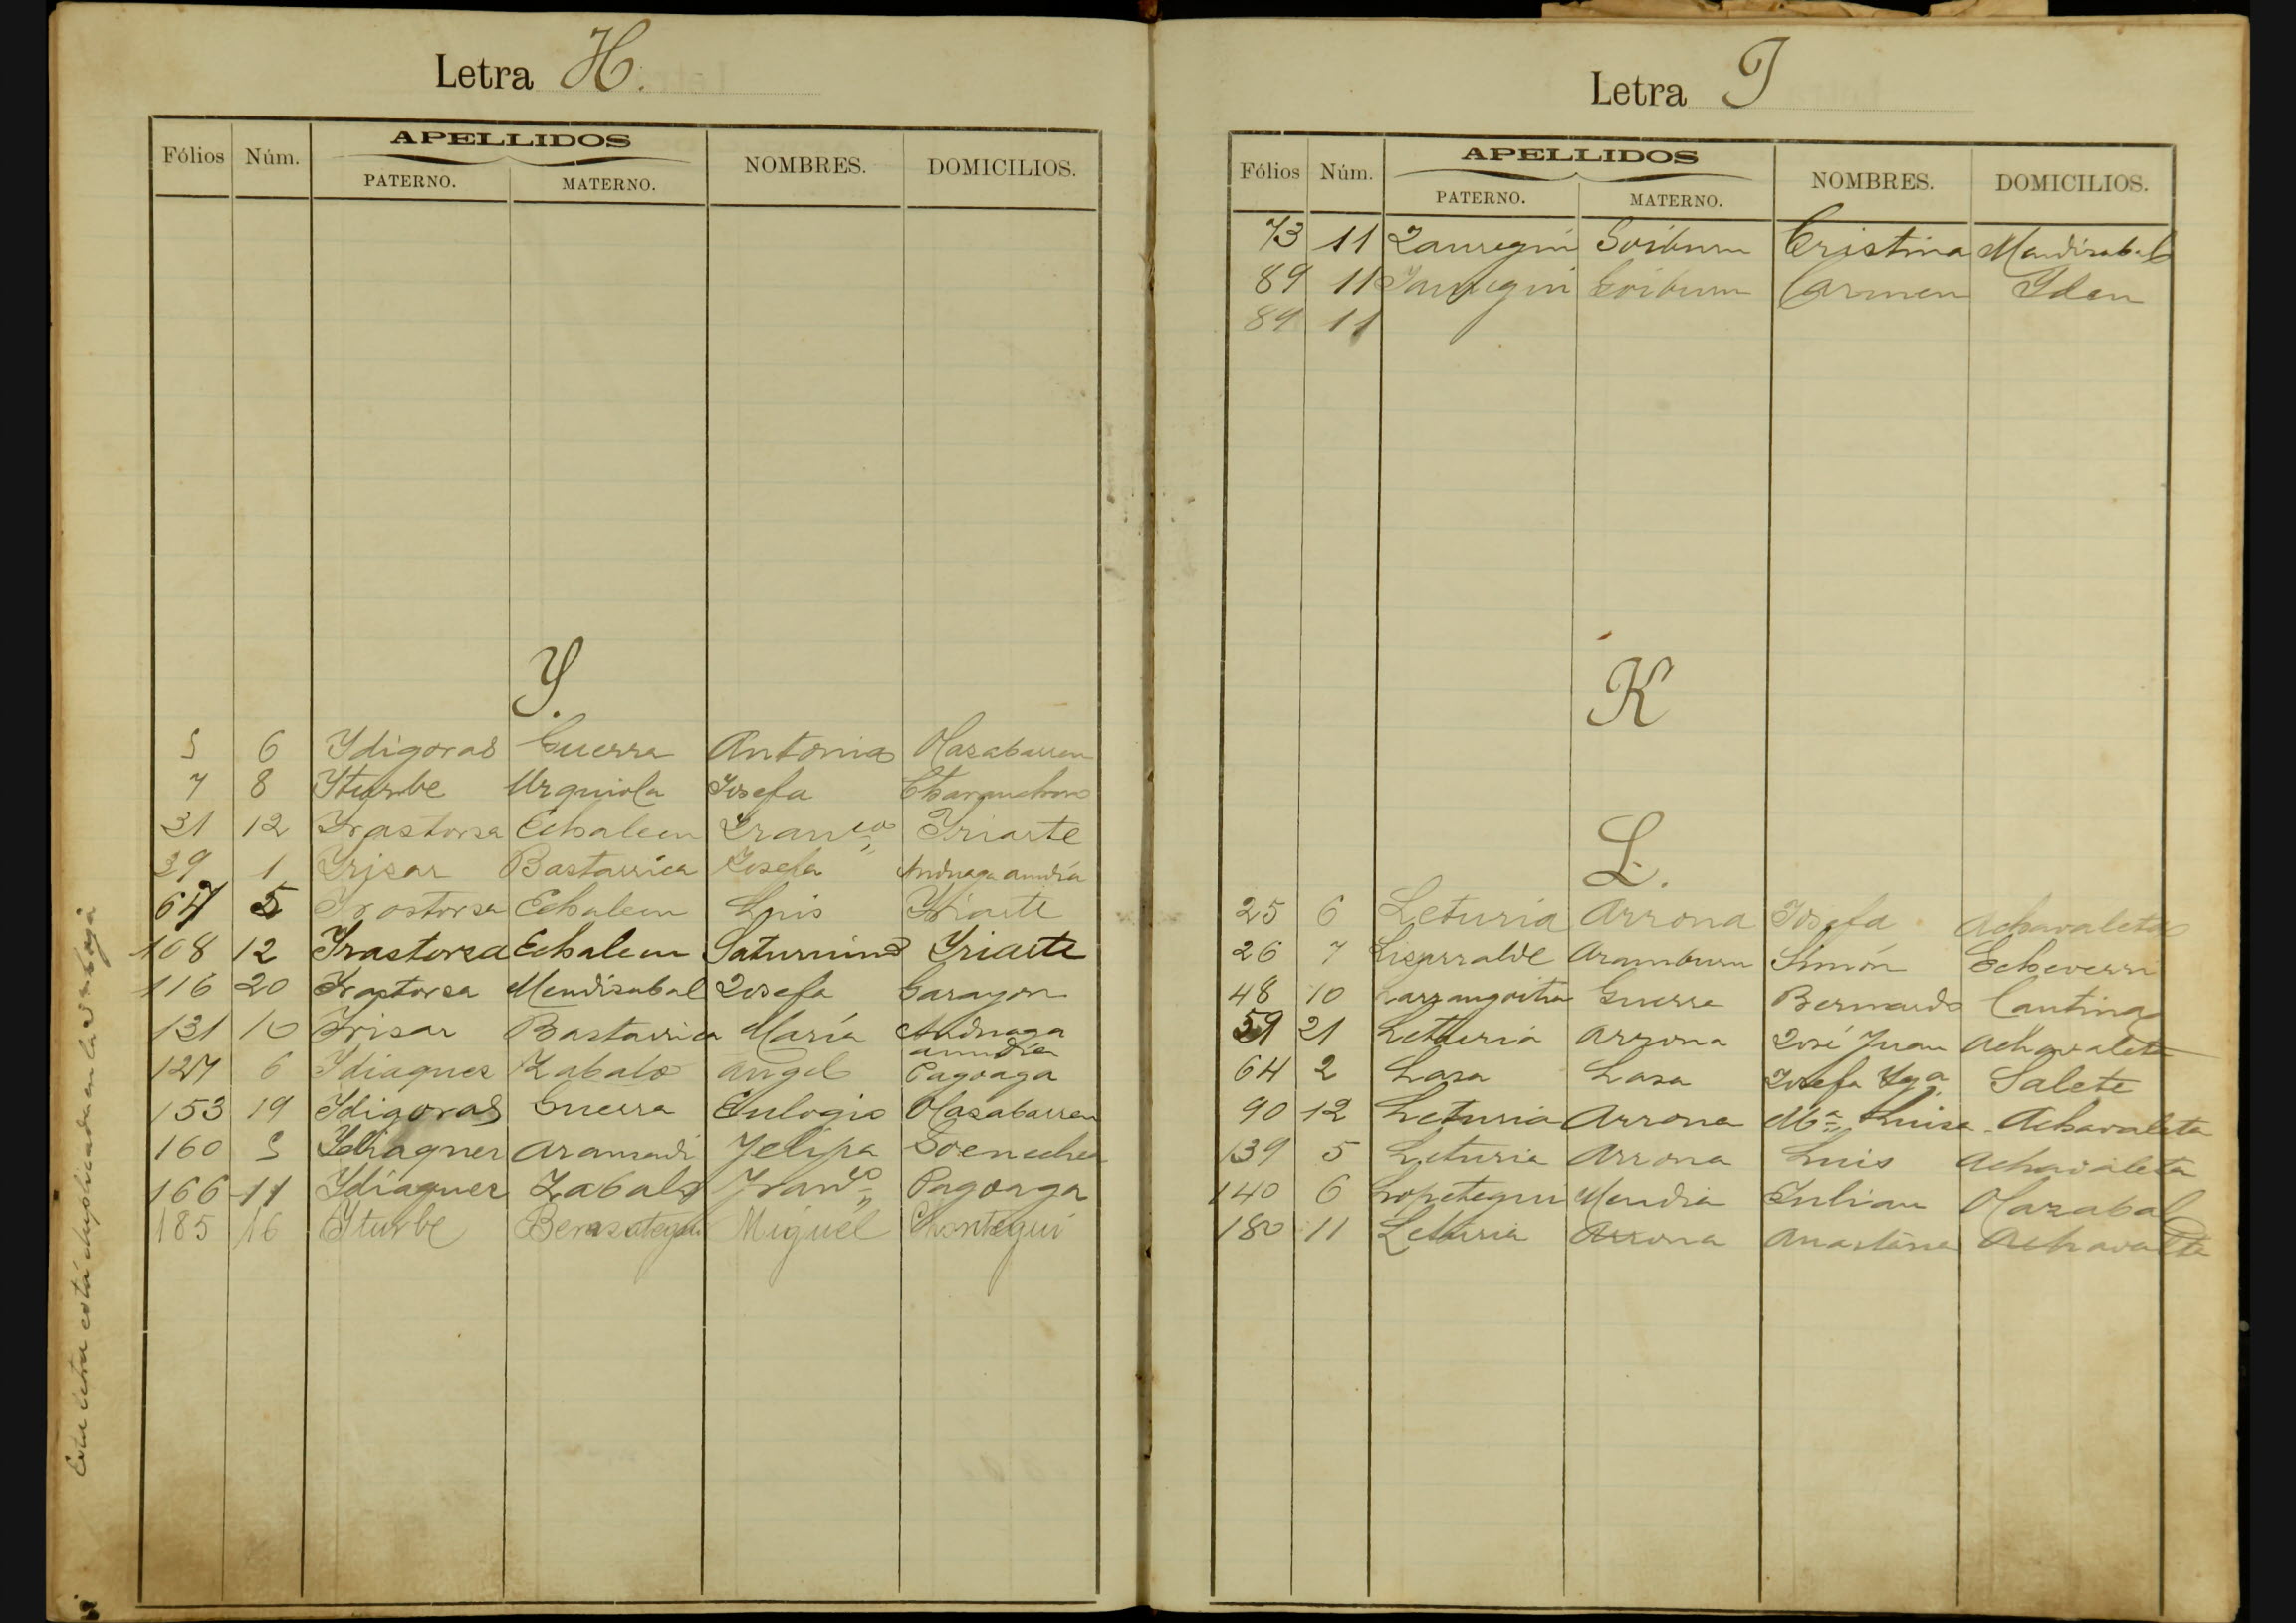 Letra H.
Fólios Núm. APELLIDOS NOMBRES. DOMICILIOS.
PATERNO. MATERNO.
Y.
5 6 Ydigoras Guerra Antonia Olazabarren
7 8 Yturbe Urquiola Josefa
31 12 Yrastorza Echalecu Fran.co Yriarte
39 1 Yrizar Bastarrica Josefa Andnaga aundia
67 5 Yrastorza Echalecu Luis Yriarte
108 12 Yrastorza Echalecu Saturnino Yriarte
116 20 Yrastorza Mendizabal Josefa Garayon
131 10 Yrizar Bastarrica María Andnaga
aundia
127 6 Ydiaquez Zabalo Angel Pagoaga
153 19 Ydigoras Guerra Eulogio Olazabarren
160 5 Ydiaquez Aramendi Felipa Goenechea
166 11 Ydiaquez Zabalo Fran.co Pagoaga
185 16 Yturbe Berasategui Miguel Chontegui
Esta letra está duplicada en la hoja
Letra J
Fólios Núm. APELLIDOS NOMBRES. DOMICILIOS.
PATERNO. MATERNO.
73 11 Jauregui Goiburu Cristina Mendizabal
89 11 Jauregui Goiburu Carmen Yden
89 11
K
L.
25 6 Leturia Arrona Josefa Achavaleta
26 7 Lizarralde Aramburu Simón Echeverri
48 10 Larzangoitia Guerra Bernardo Cantina
59 21 Leturia Arrona José Juan Achavaleta
64 2 Lasa Lasa Josefa Yg.a Salete
90 12 Leturia Arrona M.a Luisa Achavaleta
139 5 Leturia Arrona Luis Achavaleta
140 6 Lopetegui Mendia Julian Olazabal
180 11 Leturia Arrona Anastasia Achavaleta